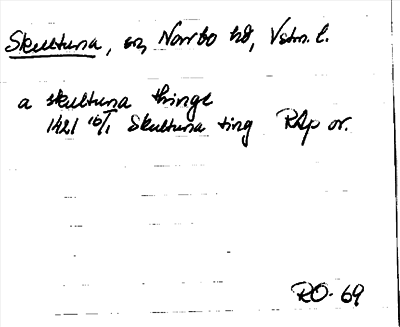 Skultuna, sn, Norrbo hd, Vstm. l.
a skultuna thinge
1421 16/1 Skultuna ting RAp or.
RO- 69